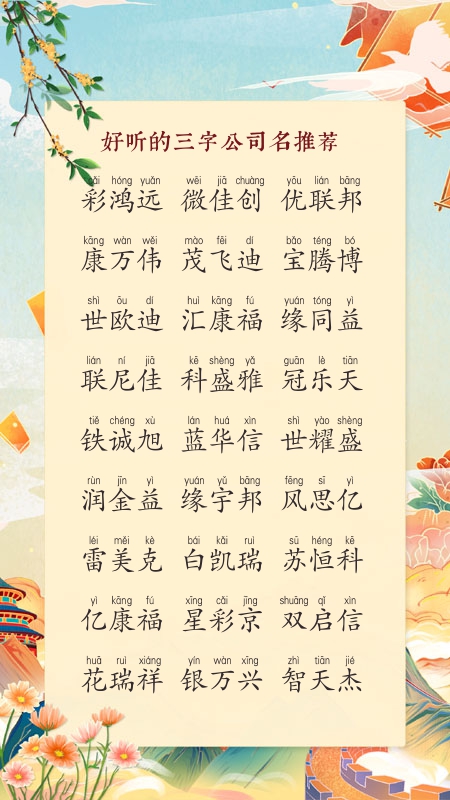 好听的三字公司名推荐
cǎi hóng yuǎn wēi jiā chuàng yōu lián bāng
彩鸿远 微佳创 优联邦
kāng wàn wěi mào fēi dí bǎo téng bó
康万伟 茂飞迪 宝腾博
shì ōu dí huì kāng fú yuán tóng yì
世欧迪 汇康福 缘同益
lián ní jiā kē shèng yǎ guān lè tiān
联尼佳 科盛雅 冠乐天
tiě chéng xù lán huá xìn shì yào shèng
铁诚旭 蓝华信 世耀盛
rùn jīn yì yuán yǔ bāng fēng sī yì
润金益 缘宇邦 风思亿
léi měi kè bái kǎi ruì sū héng kē
雷美克 白凯瑞 苏恒科
yì kāng fú xīng cǎi jīng shuāng qǐ xìn
亿康福 星彩京 双启信
huā ruì xiáng yín wàn xīng zhì tiān jié
花瑞祥 银万兴 智天杰